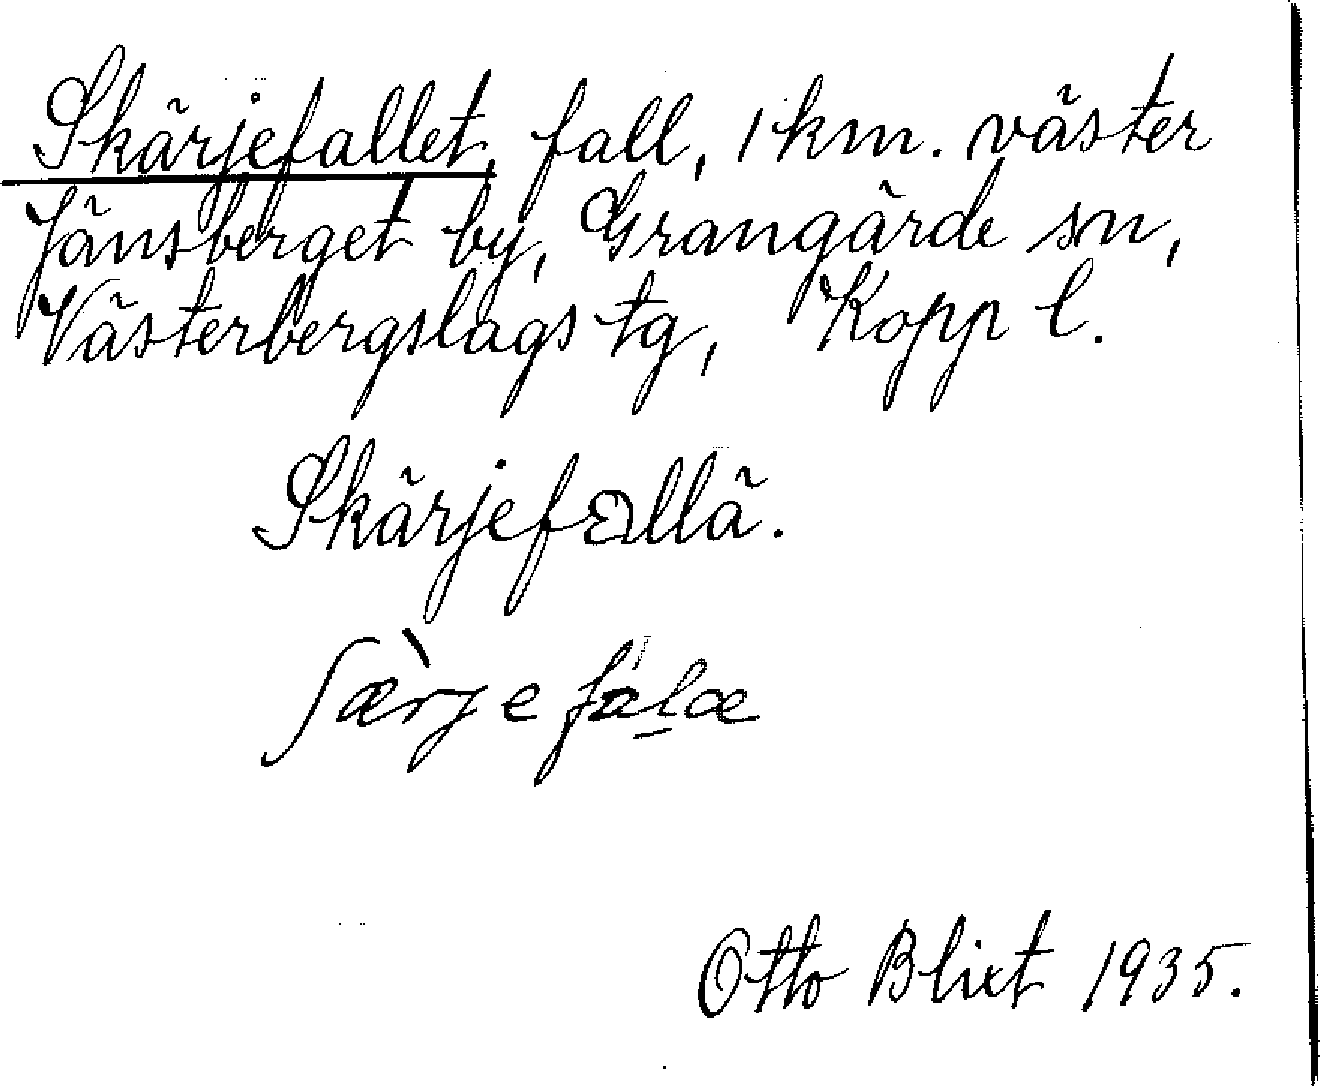 Skärjefallet, fall, 1 km. väster
Jänsberget by, Grangärde sn,
Västerbergslags tg, Kopp l.
Skärjefallä.
ʃæ̀rjefalæ
Otto Blixt 1935.